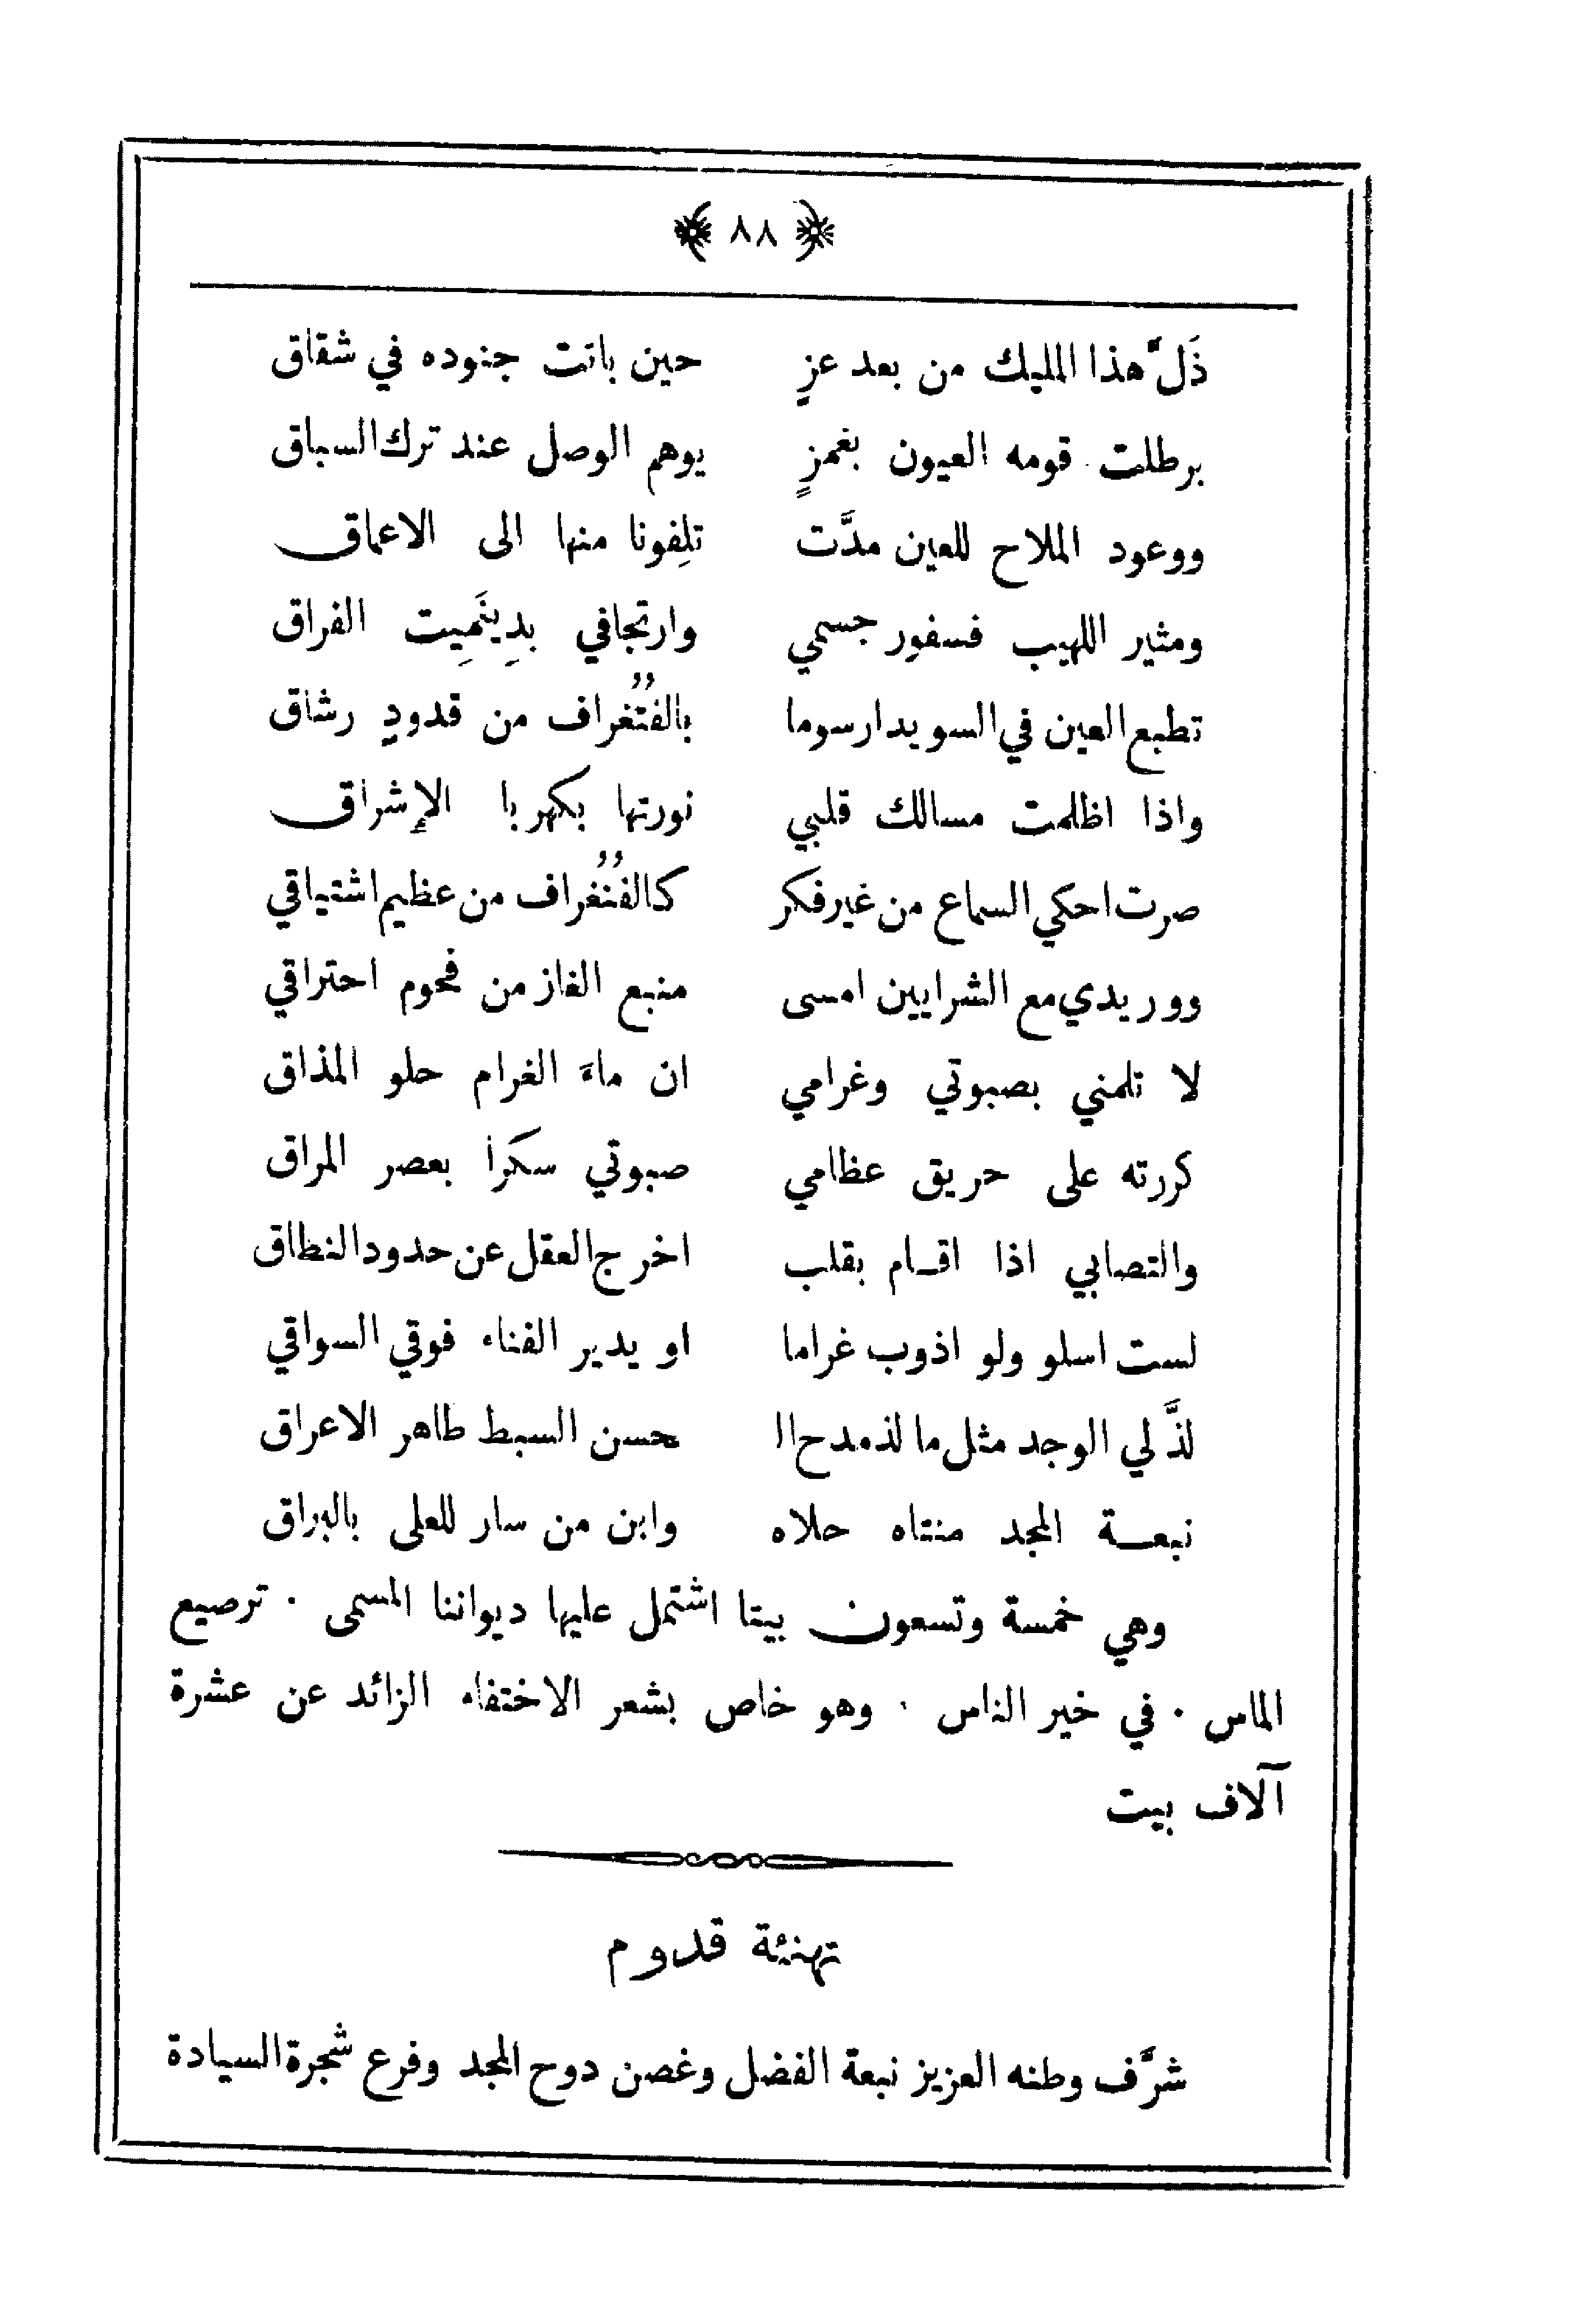 ﴿ ٨٨ ﴾
ذَلَّ هذا المليك من بعد عزٍ حين باتت جنوده في شقاق
برطلت قومه العيون بغمزٍ يوهم الوصل عند ترك السباق
ووعود الملاح للعين مدَّت تلِفونا منها الى الاعماق
ومثير اللهيب فسفور جسمي وارتجافي بدِينَمِيت الفراق
تطبع العين في السويدا رسوما بالفُتُغراف من قدودٍ رشاق
واذا اظلمت مسالك قلبي نورتها بكهربا الإشراق
صرت احكي السماع من غير فكر كالفُنُغراف من عظيم اشتياقي
ووريدي مع الشرايين امسى منبع الغاز من فحوم احتراقي
لا تلمني بصبوتي وغرامي ان ماءَ الغرام حلو المذاق
كررته على حريق عظامي صبوتي سكرا بعصر المراق
والتصابي اذا اقام بقلب اخرج العقل عن حدود النطاق
لست اسلو ولو اذوب غراما او يدير الفناء فوقي السواقي
لذَّ لي الوجد مثل ما لذ مدح ال حسن السبط طاهر الاعراق
نبعة المجد منتاه حلاه وابن من سار للعلى بالبراق
وهي خمسة وتسعون بيتا اشتمل عليها ديواننا المسمى . ترصيع
الماس . في خير الناس . وهو خاص بشعر الاختفاء الزائد عن عشرة
آلاف بيت
تهنئة قدوم
شرَّف وطنه العزيز نبعة الفضل وغصن دوح المجد وفرع شجرة السيادة